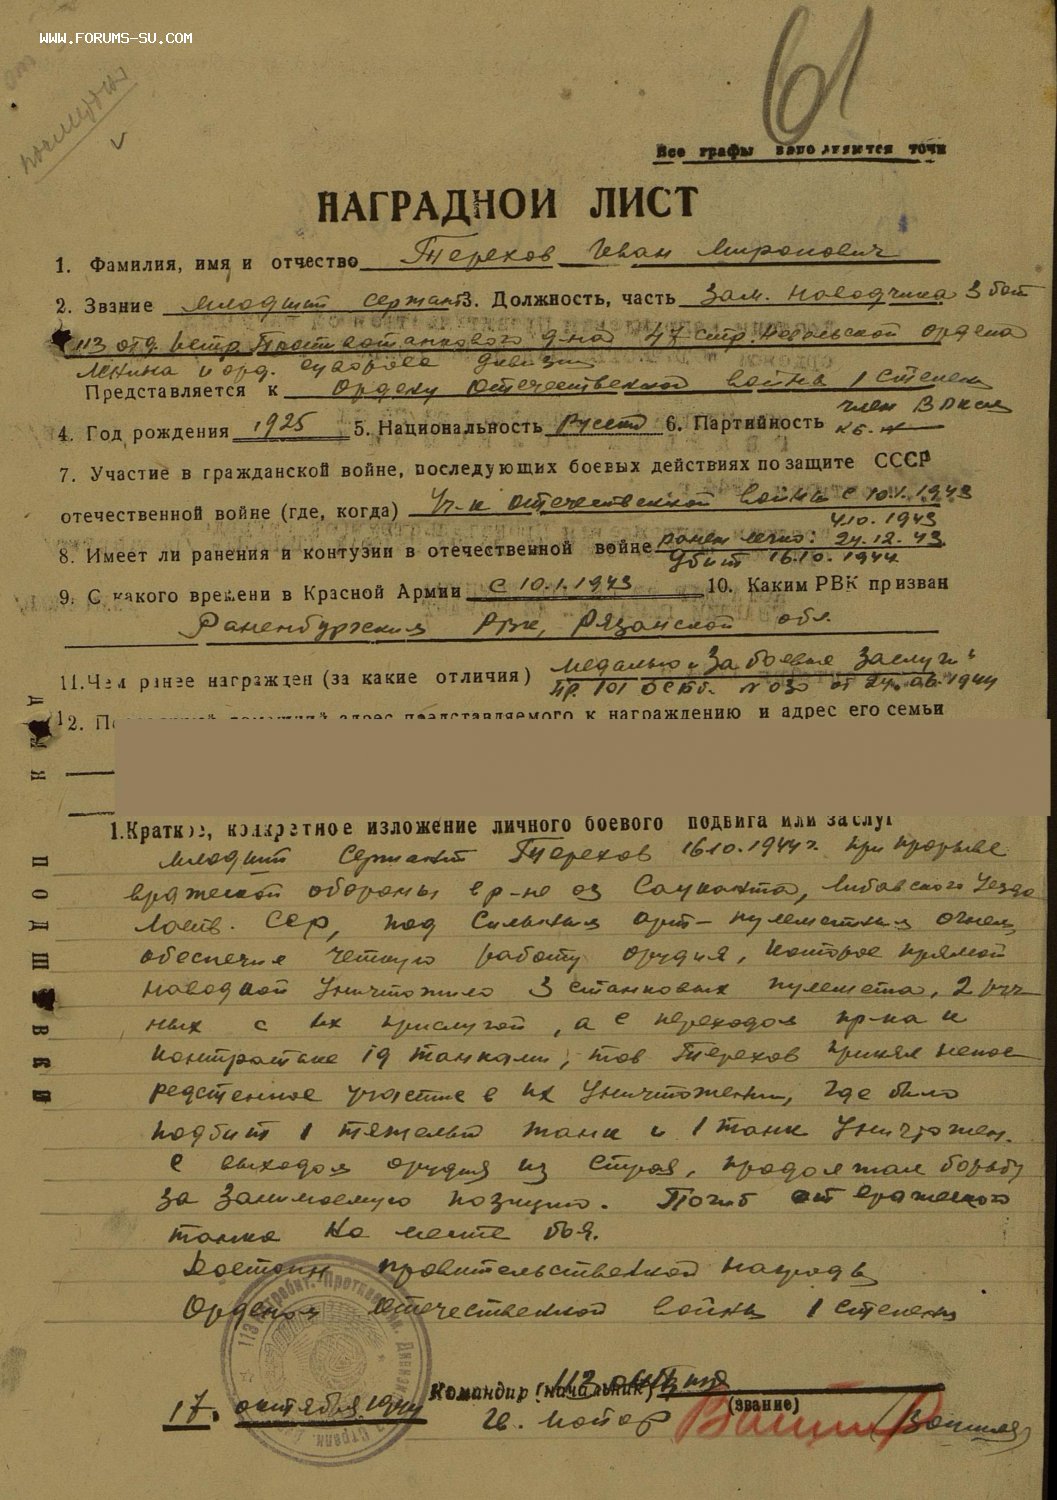 WWW.FORUMS-SU.COM
61
посмертно
Все графы заполняются точно
НАГРАДНОЙ ЛИСТ
1. Фамилия, имя и отчество Терехов Иван Миронович
2. Звание младший сержант 3. Должность, часть зам. наводчика 3 бат
113 отд. истр. Противотанкового д-на 47 стр. Невельской ордена
Ленина и орд. Суворова дивизии
Представляется к ордену Отечественной войны 1 степени
член ВЛКСМ
4. Год рождения 1925 5. Национальность русский 6. Партийность
7. Участие в гражданской войне, последующих боевых действиях по защите СССР
отечественной войне (где, когда) Уч-к отечественной войны с 10.1.1943
4.10.1943
8. Имеет ли ранения и контузии в отечественной войне ранен легко: 24.12.43
Убит 16.10.1944
9. С какого времени в Красной Армии с 10.1.1943 10. Каким РВК призван
Раненбургским РВК, Рязанской обл.
медалью "За боевые заслуги"
11. Чем ранее награжден (за какие отличия) пр. 101 от 24.08.1944
2. адрес представляемого к награждению и адрес его семьи
1. Краткое, конкретное изложение личного боевого подвига или заслуг
младший сержант Терехов 16.10.1944 г. при прорыве
вражеской обороны в р-не оз Либавского уезда
Латв. ССР, под сильным арт-пулеметным огнем,
обеспечив четкую работу орудия, которое прямой
наводкой уничтожило 3 станковых пулемета, 2 руч-
ных с их прислугой, а с переходом пр-ка в
контратаке 19 танками, тов Терехов принял непос-
редственное участие в их уничтожении, где было
подбит 1 тяжелый танк и 1 танк уничтожен.
С выходом орудия из строя, продолжал борьбу
за занимаемую позицию. Погиб от вражеского
танка на месте боя.
Достоин правительственной награды
Орденом Отечественной войны 1 степени
Командир (начальник) 113
(звание)
17. октября 1944 гв. майор
ПОДШИВКИ